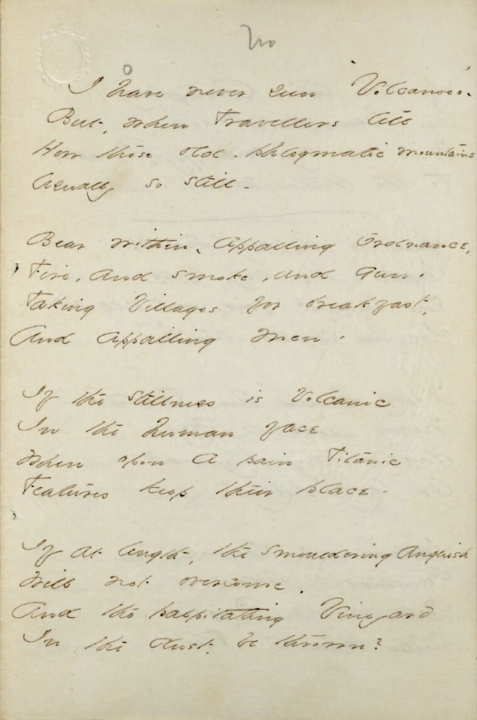 I have never seen 'Volcanoes' -
But, when Travellers tell
How those old - phlegmatic mountains
Usually so still -
Bear within - appalling Ordnance,
Fire, and smoke, and gun -
Taking Villages for breakfast,
And appalling Men -
If the stillness is Volcanic
In the human face
When upon a pain Titanic
Features keep their place -
If at length, the smouldering anguish
Will not overcome,
And the palpitating Vineyard
In the dust, be thrown?